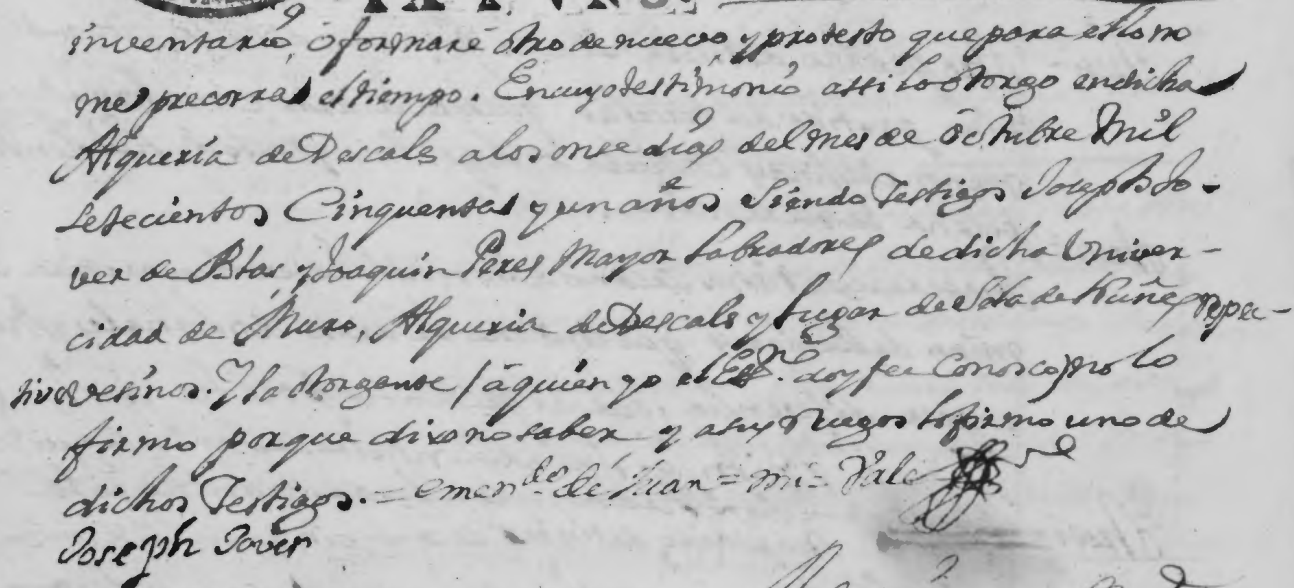 inventario, o formare otro de nuevo y protesto que para ello no
me precorra el tiempo. En cuyo testimonio assi lo otorgo en dicha
Alqueria de Descals a los onse dias del mes de Octubre Mil
setecientos Cinquenta y un años siendo Testigos Joseph Jo-
ver de Blas, y Joaquin Peres Mayor Labradores de dicha Univer-
cidad de Muro, Alqueria de Descals y Lugar de Setla de Nuñes respec-
tive vesinos. Y la otorgante (a quien yo el Essno. doy fee conosco) no lo
firmo porque dixo no saber y a sus ruegos lo firmo uno de
dichos Testigos. = emendo. de Juan = mi = Vale
Joseph Jover